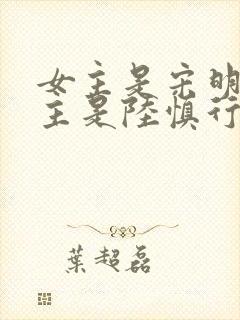 女主是宋明
主是陸慎行
葉超磊